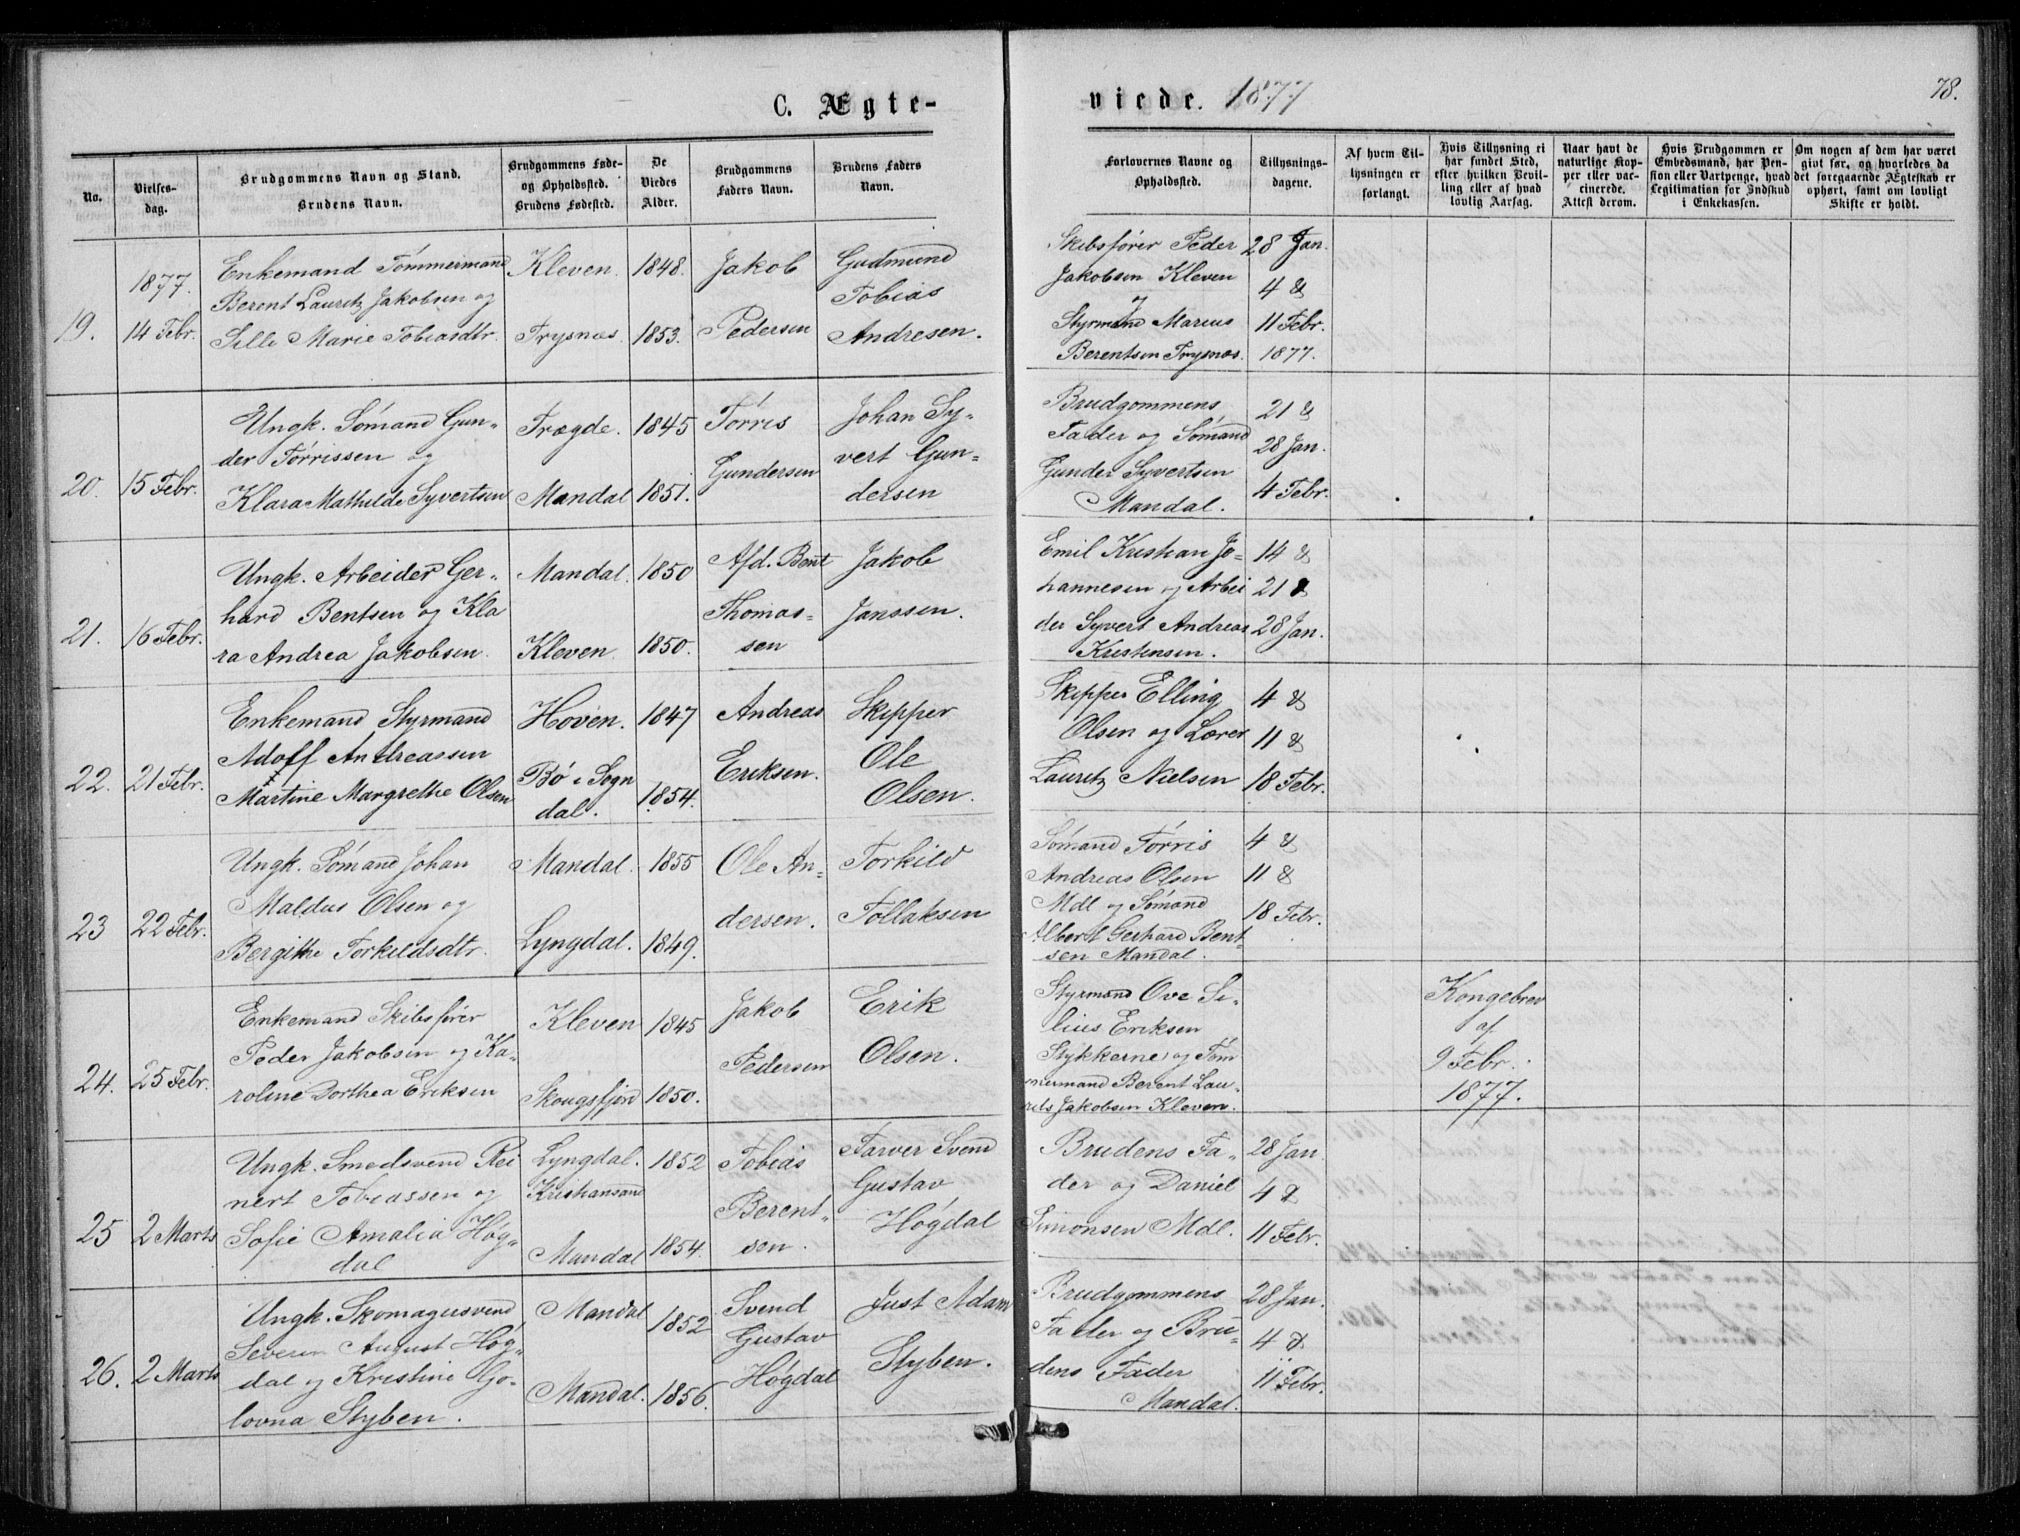 C. Ægte-
viede. 1877
78.
No.
Vielses-
dag.
Brudgommens Navn og Stand.
Brudens Navn.
Brudgommens Føde-
og Opholdssted.
Brudens Fødested.
De
Viedes
Alder.
Brudgommens
Faders Navn.
Brudens Faders
Navn.
Forlovernes Navne og
Opholdssted.
Tillysnings-
dagene.
Af hvem Til-
lysningen er
forlangt.
Hvis Tillysning ei
har fundet Sted,
efter hvilken Bevil-
ling eller af hvad
lovlig Aarsag.
Naar havt de
naturlige Kop-
per eller vac-
cinerede.
Attest derom.
Hvis Brudgommen er
Embedsmand, har Pen-
sion eller Vartpenge, hvad
Legitimation for Indskud
i Enkekassen.
Om nogen af dem har været
givt før, og hvorledes da
det foregaaende Ægteskab er
ophørt, samt om lovligt
Skifte er holdt.
19.
1877.
14 Febr.
Enkemand Tømmermand
Berent Lauritz Jakobsen og
Sille Marie Tobiasdtr.
Kleven.
Trysnæs.
1848.
1853.
Jakob
Pedersen
Gudmund
Tobias
Andresen.
Skibsfører Peder
Jakobsen Kleven
og
Styrmand Marius
Berentsen Trysnæs.
28 Jan.
4 &
11 Febr.
1877.
20.
15 Febr.
Ungk. Sømand Gun-
der Tørrissen og
Klara Mathilde Syvertsen
Trægde.
Mandal
1845
1851.
Tørris
Gundersen
Johan Sy-
vert Gun-
dersen
Brudgommens
Fader og Sømand
Gunder Syvertsen
Mandal.
21 &
28 Jan.
4 Febr.
21.
16 Febr.
Ungk. Arbeider Ger-
hard Bentsen og Kla
ra Andrea Jakobsen.
Mandal.
Kleven
1850
1850.
Afd. Bent
Thomas-
sen
Jakob
Janssen.
Emil Kristian Jo-
hannesen og Arbei
der Syvert Andreas
Kristensen.
14 &
21 &
28 Jan.
22.
21 Febr.
Enkemand Styrmand
Adolf Andreassen
Martine Margrethe Olsen
Hoven.
Bø i Sogn
dal.
1847
1854.
Andreas
Eriksen.
Skipper
Ole
Olsen.
Skipper Elling
Olsen og Lærer
Lauritz Nielsen
4 &
11 &
18 Febr.
23
22 Febr.
Ungk. Sømand Johan
Maldus Olsen og
Bergithe Torkildsdtr.
Mandal.
Lyngdal.
1855
1849.
Ole An-
dersen.
Torkild
Tollaksen
Sømand Tørris
Andreas Olsen
Mdl og Sømand
Albert Gerhard Bent-
sen Mandal.
4 &
11 &
18 Febr.
24.
25 Febr.
Enkemand Skibsfører
Peder Jakobsen og Ka-
roline Dorthea Eriksen
Kleven
Skougsfjord
1845
1850.
Jakob
Pedersen
Erik
Olsen.
Styrmand Ove Si-
lius Eriksen
Stykkerne og Tøm
mermand Berent Lau-
rits Jakobsen Kleven.
Kongebrev
af
9 Febr.
1877.
25
2 Marts
Ungk. Smedsvend Rei
nert Tobiassen og
Sofie Amalia Høg-
dal
Lyngdal.
Kristiansand
Mandal
1852
1854.
Tobias
Berent-
sen.
Farver Svend
Gustav
Høgdal
Brudens Fa-
der og Daniel
Simonsen Mdl.
28 Jan.
4 &
11 Febr.
26.
2 Marts
Ungk. Skomagersvend
Severin August Høg-
dal og Kristine Go-
lovna Styben.
Mandal
Mandal.
1852
1856.
Svend
Gustav
Høgdal
Just Adam
Styben.
Brudgommens
Fader og Bru-
dens Fader
Mandal.
28 Jan.
4 &
11 Febr.